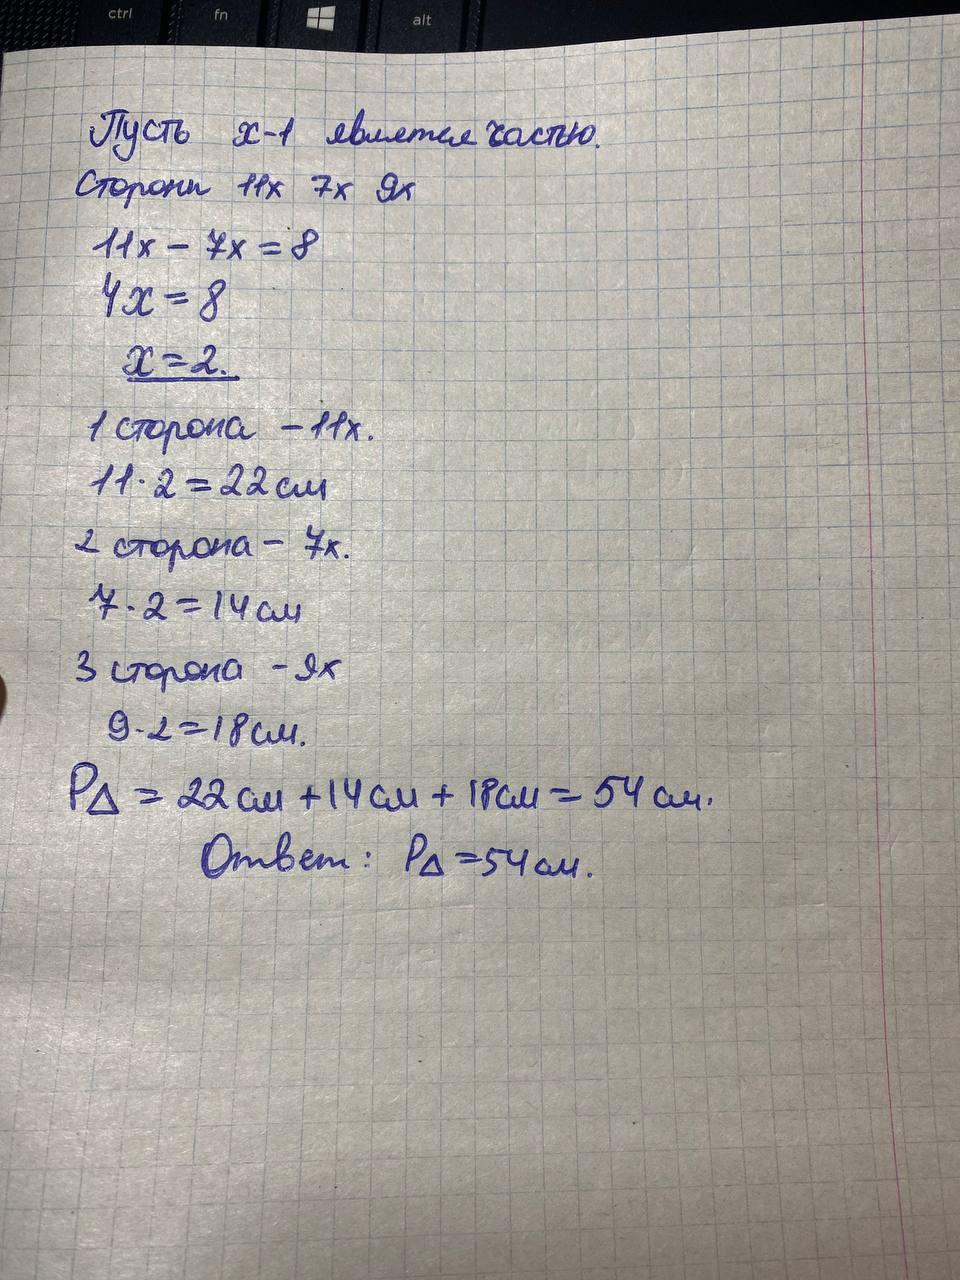 ctrl fn alt
Пусть x-1 является частью.
Стороны 11x 7x 9x
11x - 7x = 8
4x = 8
x = 2.
1 сторона - 11x.
11 · 2 = 22 см
2 сторона - 7x.
7 · 2 = 14 см
3 сторона - 9x
9 · 2 = 18 см.
P△ = 22 см + 14 см + 18 см = 54 см.
Ответ: P△ = 54 см.